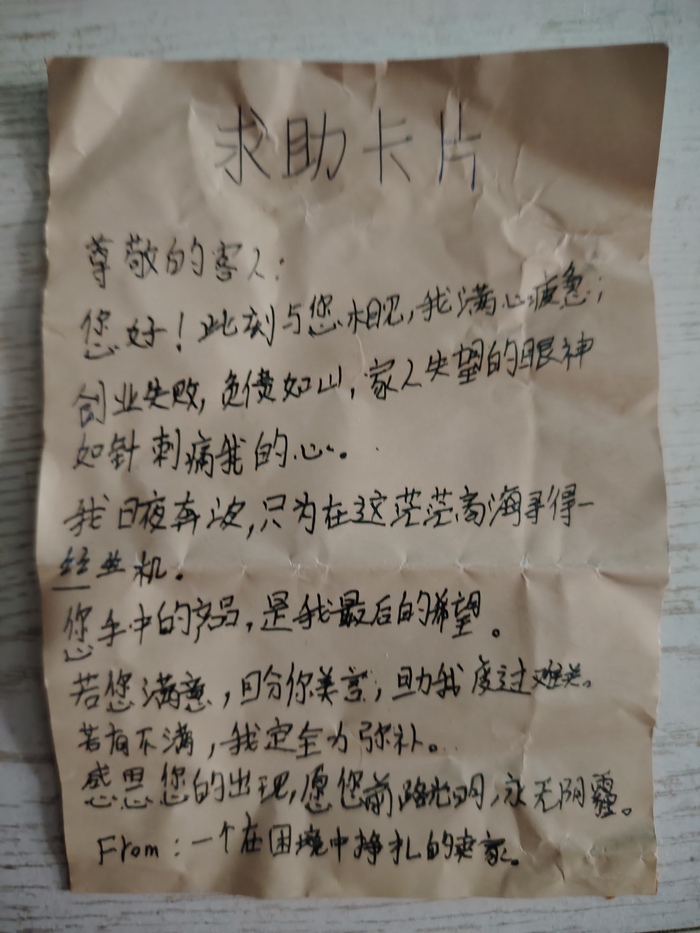 求助卡片
尊敬的客人:
您好!此刻与您相见,我满心疲惫;
创业失败,负债如山,家人失望的眼神
如针刺痛我的心。
我日夜奔波,只为在这茫茫商海寻得一
丝生机。
您手中的产品,是我最后的希望。
若您满意,盼您美言,助我度过难关。
若有不满,我定全力弥补。
感恩您的出现,愿您前路光明,永无阴霾。
From:一个在困境中挣扎的卖家。